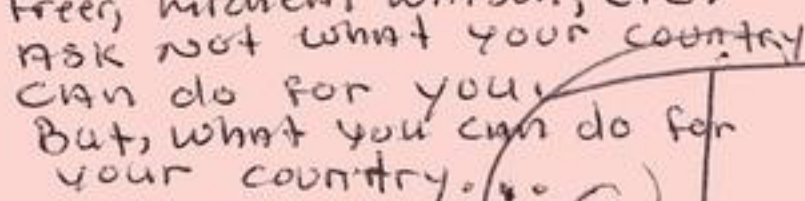 Ask Not What your country
Can do for you.
But, What you can do for
your country...